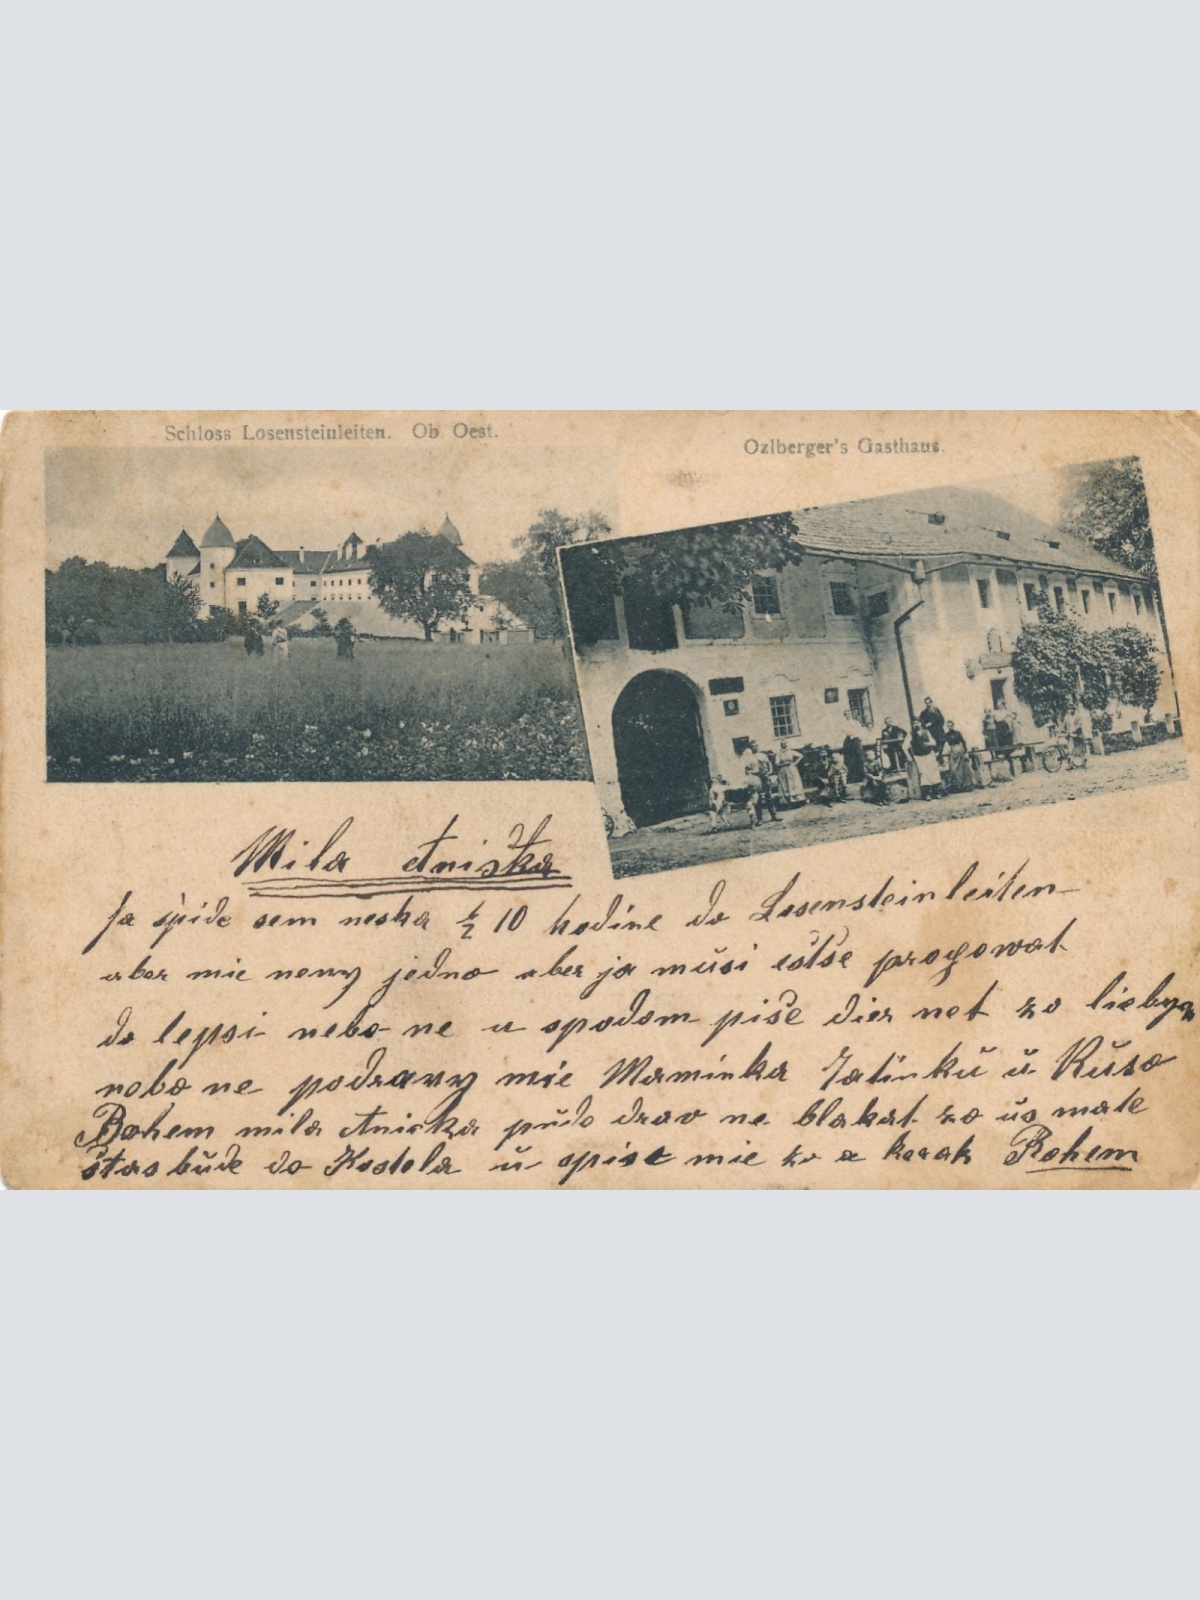 Schloss Losensteinleiten. Ob. Oest.
Ozlberger's Gasthaus.
Mila Aniska
Ja špide sem neska ½ 10 hodine do Losensteinleiten
aber mie neny jedno aber ja musi estše progowat
do lepsi nebo ne u spodom piše dier net zo liebyn
nobo ne podrawy mie Maminka Tatinku u Ruso
Bohem mila Aniska pudo drav ne blakat zo us mate
štas bude do Kostela u spist mie zo a korak Bohem